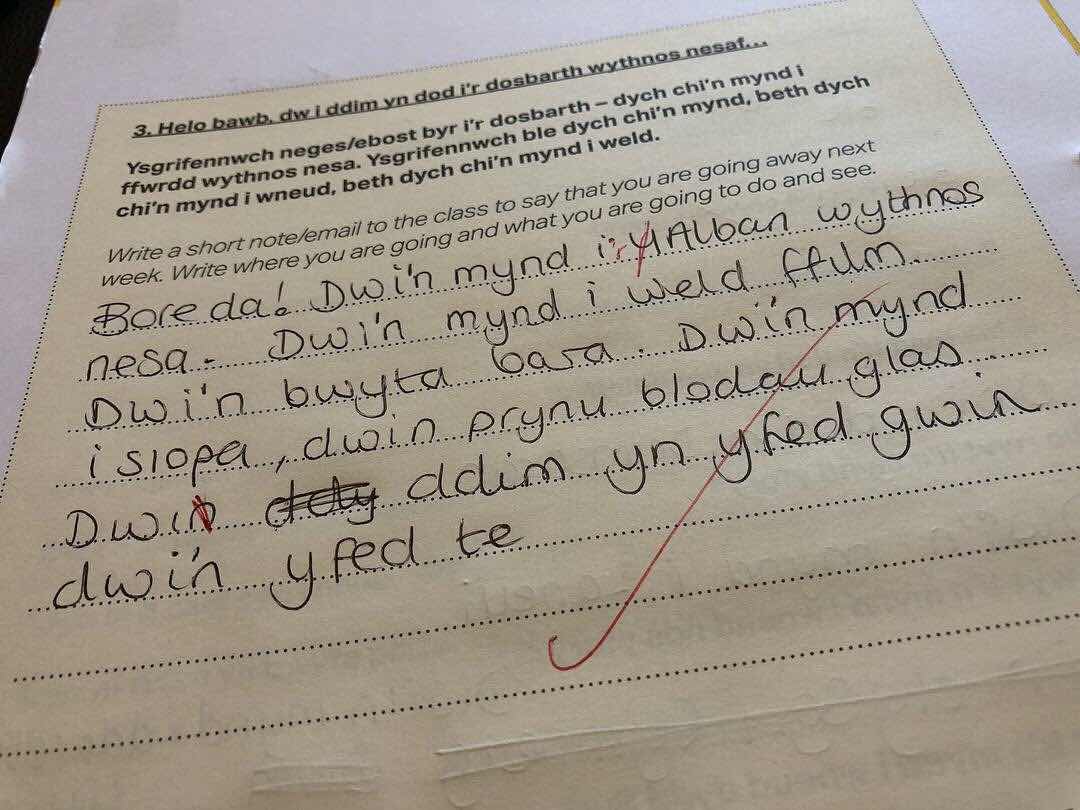 3. Helo bawb, dw i ddim yn dod i'r dosbarth wythnos nesaf...
Ysgrifennwch neges/ebost byr i'r dosbarth – dych chi'n mynd i
ffwrdd wythnos nesa. Ysgrifennwch ble dych chi'n mynd, beth dych
chi'n mynd i wneud, beth dych chi'n mynd i weld.
Write a short note/email to the class to say that you are going away next
week. Write where you are going and what you are going to do and see.
Bore da! Dwi'n mynd i'r Alban wythnos
nesa. Dwi'n mynd i weld ffilm.
Dwi'n bwyta bara. Dwi'n mynd
i siopa, dwin prynu blodau glas
Dwi ddim yn yfed gwin
dwi'n yfed te